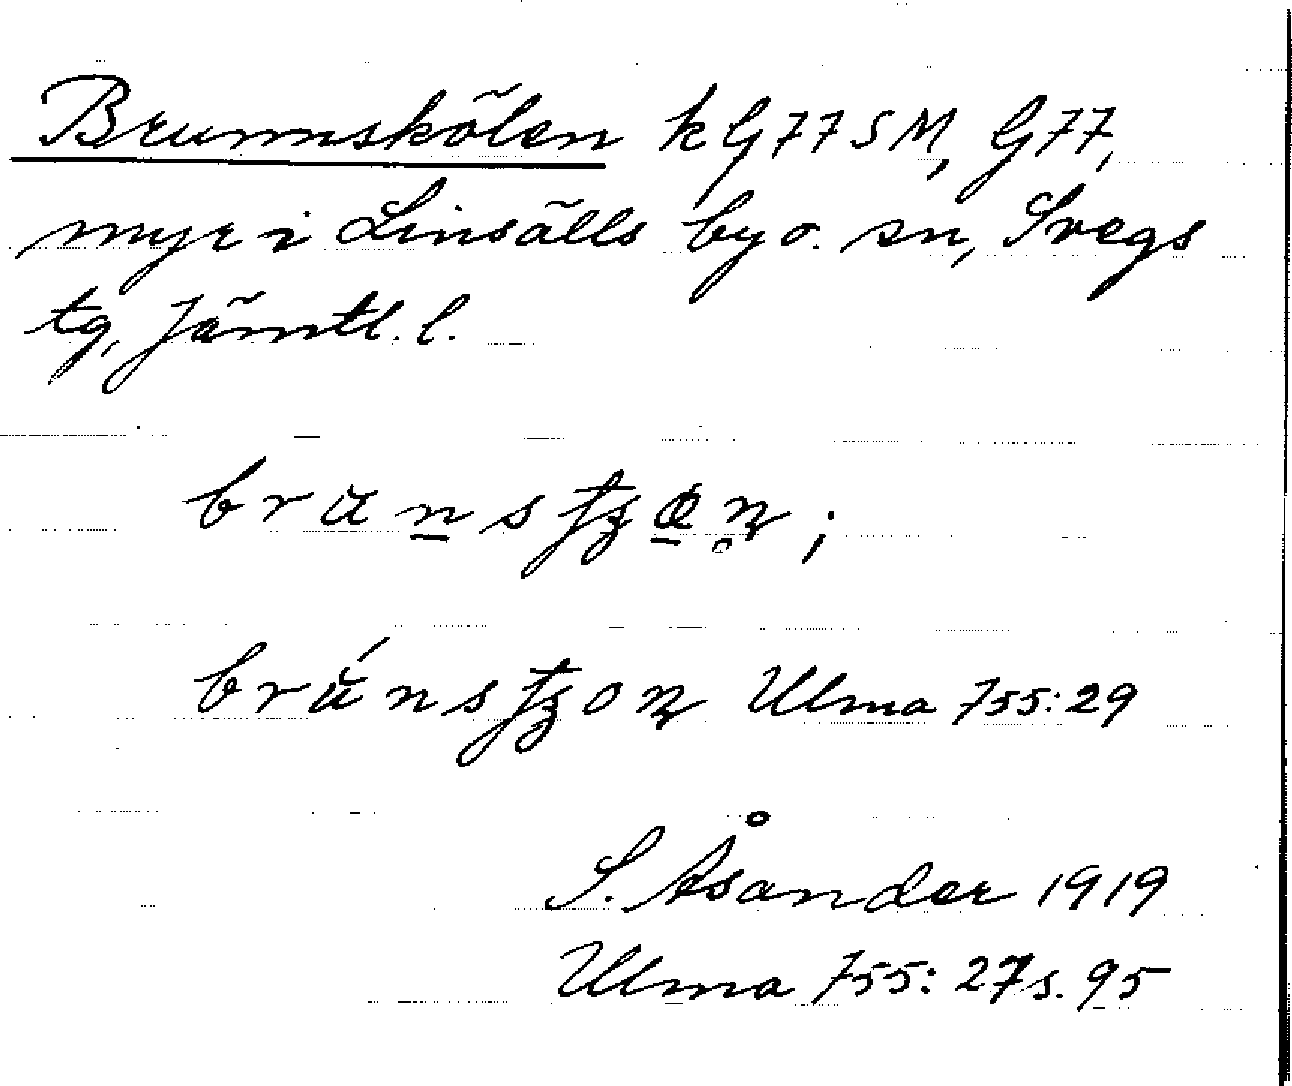 Brunnskölen k G77SM, G77,
myr i Linsälls by o. sn, Svegs
tg, Jämtl. l.
Ulma 755:29
S. Åsander 1919
Ulma 755: 27 s. 95